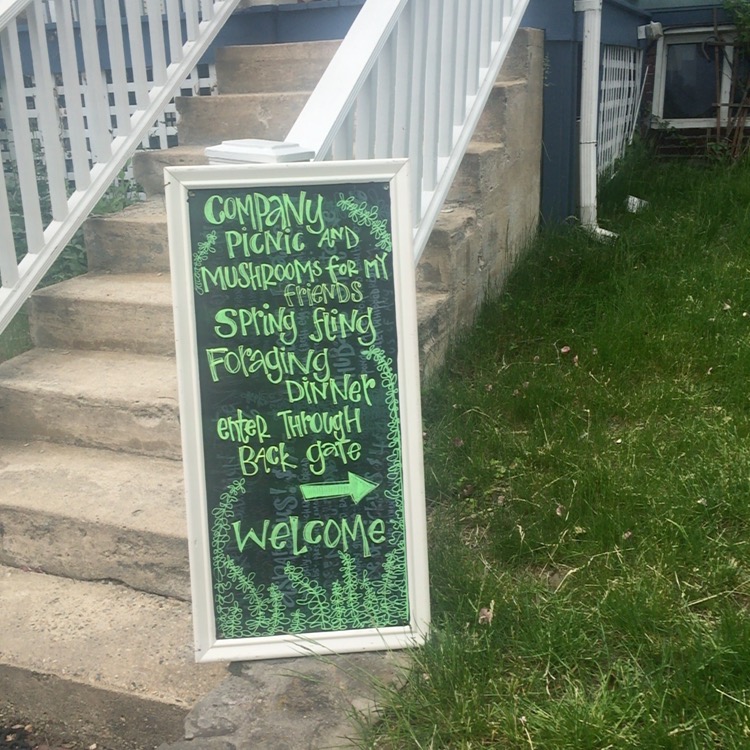 COMPANY
PICNIC AND
MUSHROOMS for MY
friends
SPRING fLING
FORAGING
DINNER
enter THROUGH
BACK gate
WELCOME